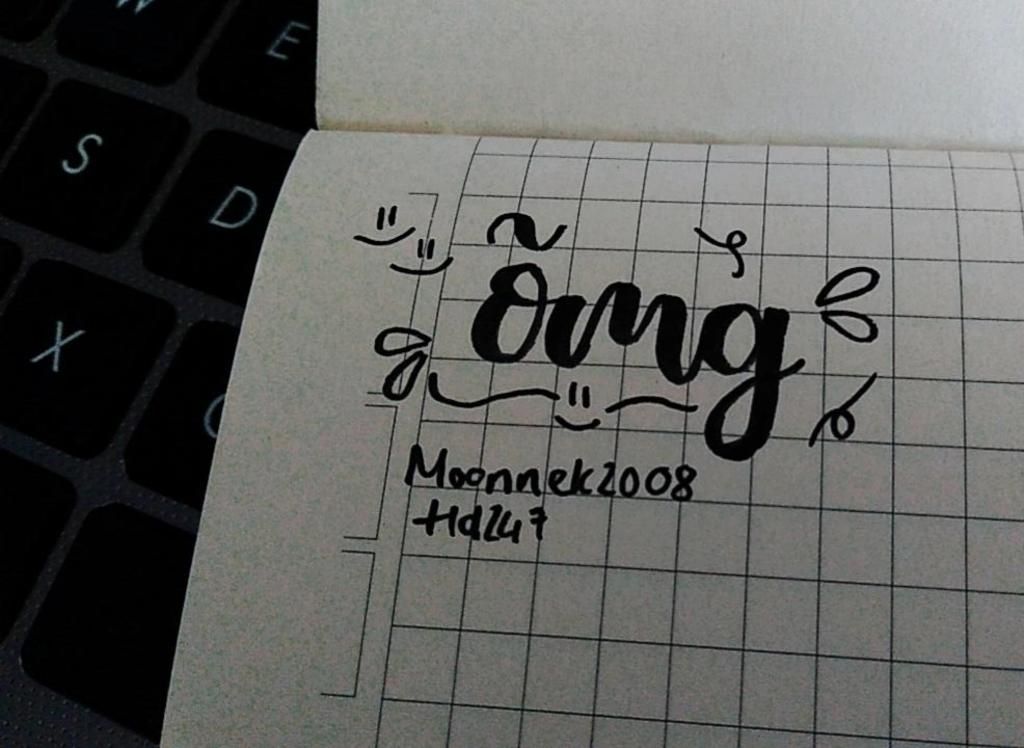 W E
S D
X C
õmg
Moonnek2008
Hd247